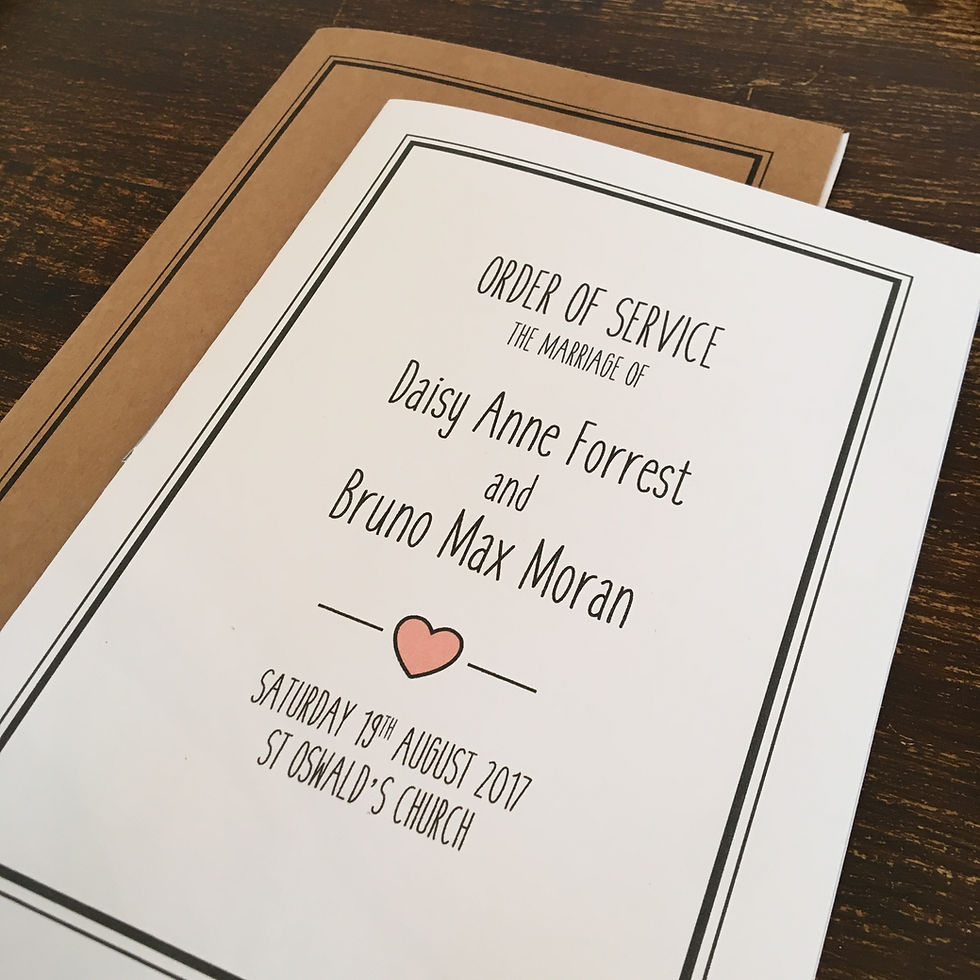 ORDER OF SERVICE
THE MARRIAGE OF
Daisy Anne Forrest
and
Bruno Max Moran
SATURDAY 19TH AUGUST 2017
ST OSWALD'S CHURCH